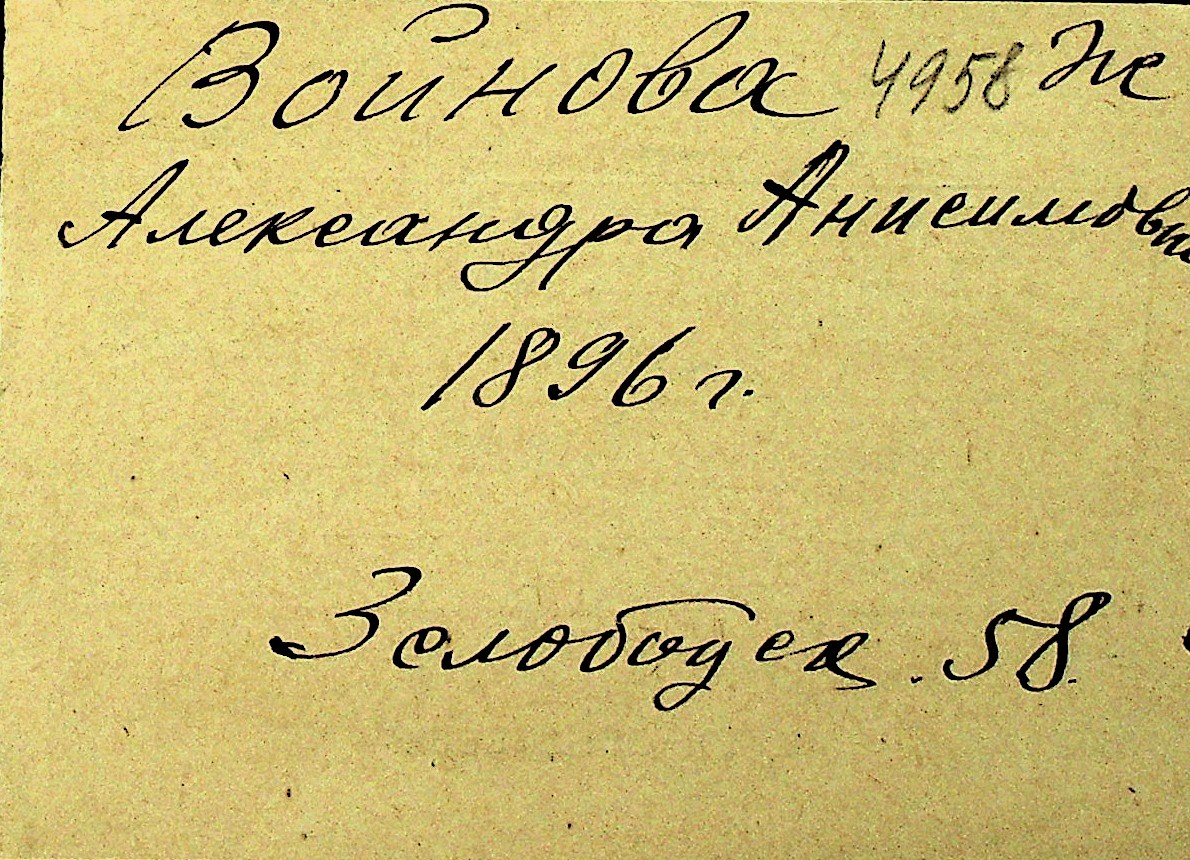 Войнова 4958
Александра Анисимовн
1896 г.
3 слободск. 58.